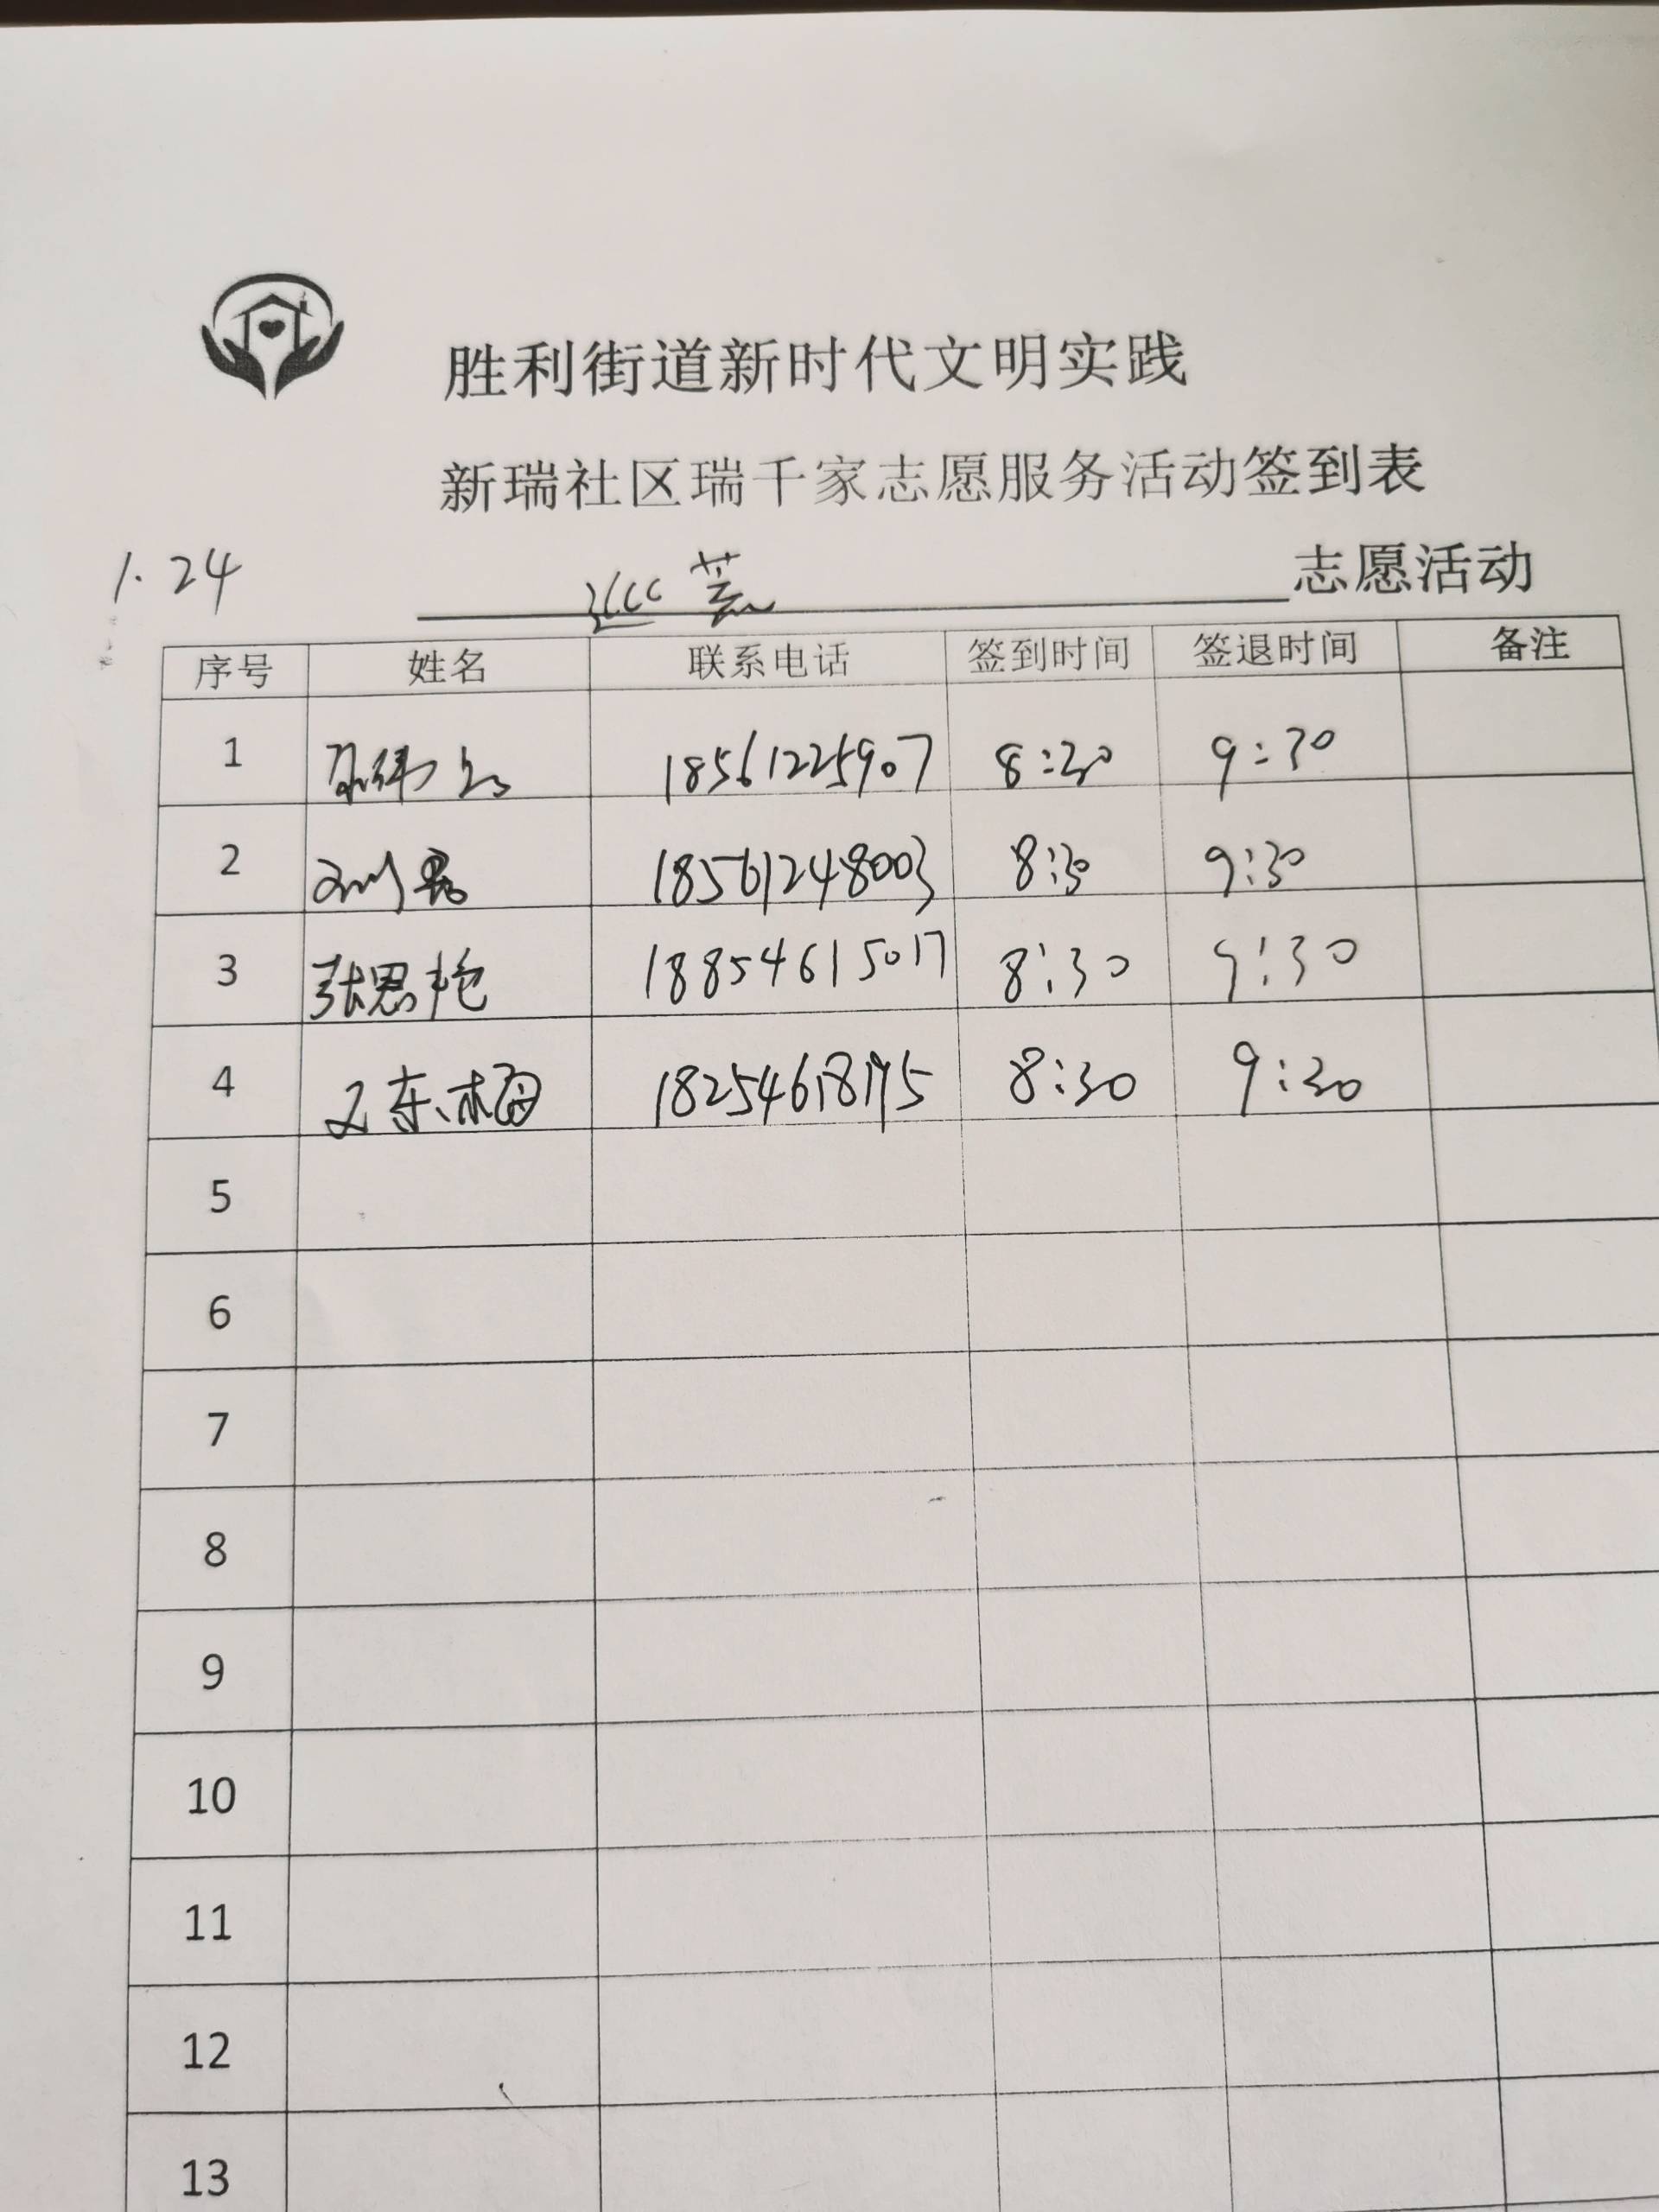 胜利街道新时代文明实践
新瑞社区瑞千家志愿服务活动签到表
1.24
志愿活动
序号 姓名 联系电话 签到时间 签退时间 备注
1 18561225907 8:30 9:30
2 18561248003 8:30 9:30
3 张思艳 18854615017 8:30 9:30
4 东梅 8:30 9:30
5
6
7
8
9
10
11
12
13